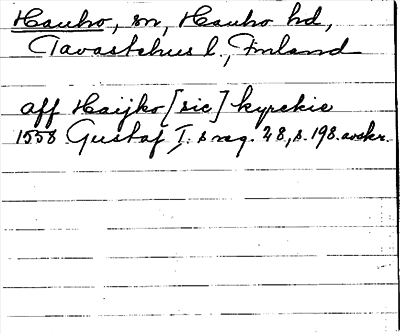 Hauho, sn, Hauho hd,
Tavastehus l., Finland
aff Haijko [sic] kyrckie
1558 Gustaf I:s reg. 28, s. 198. avskr.